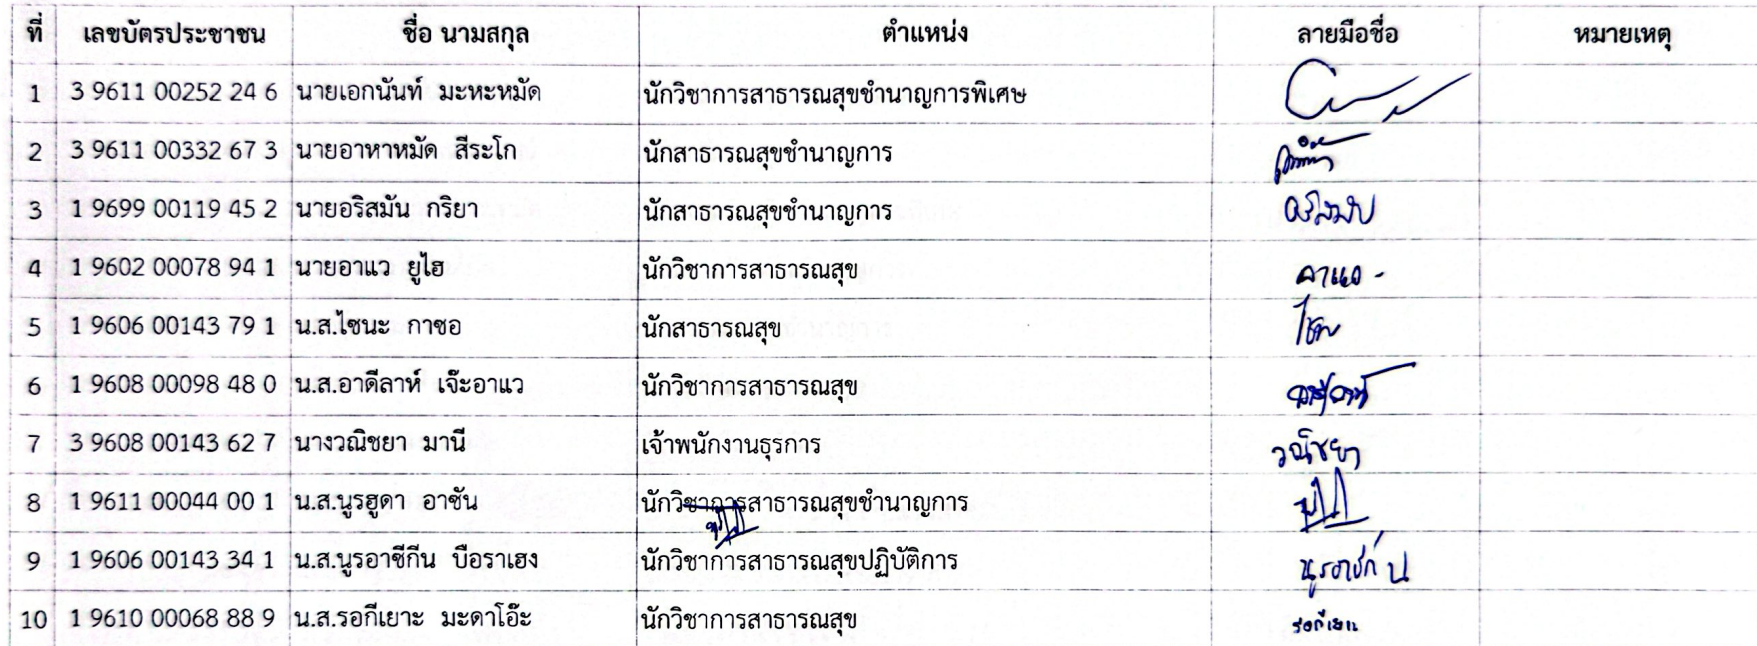 ที่ เลขบัตรประชาชน ชื่อ นามสกุล ตำแหน่ง ลายมือชื่อ หมายเหตุ
1 3 9611 00252 24 6 นายเอกนันท์ มะหะหมัด นักวิชาการสาธารณสุขชำนาญการพิเศษ
2 3 9611 00332 67 3 นายอาหาหมัด สีระโก นักสาธารณสุขชำนาญการ
3 1 9699 00119 45 2 นายอริสมัน กริยา นักสาธารณสุขชำนาญการ อริสมัน
4 1 9602 00078 94 1 นายอาแว ยูไฮ นักวิชาการสาธารณสุข อาแว -
5 1 9606 00143 79 1 น.ส.ไซนะ กาซอ นักสาธารณสุข
6 1 9608 00098 48 0 น.ส.อาดีลาห์ เจ๊ะอาแว นักวิชาการสาธารณสุข
7 3 9608 00143 62 7 นางวณิชยา มานี เจ้าพนักงานธุรการ วณิชยา
8 1 9611 00044 00 1 น.ส.นูรฮูดา อาซัน นักวิชาการสาธารณสุขชำนาญการ
9 1 9606 00143 34 1 น.ส.นูรอาซีกีน บือราเฮง นักวิชาการสาธารณสุขปฏิบัติการ นูรอาซีกีน
10 1 9610 00068 88 9 น.ส.รอกีเยาะ มะดาโอ๊ะ นักวิชาการสาธารณสุข